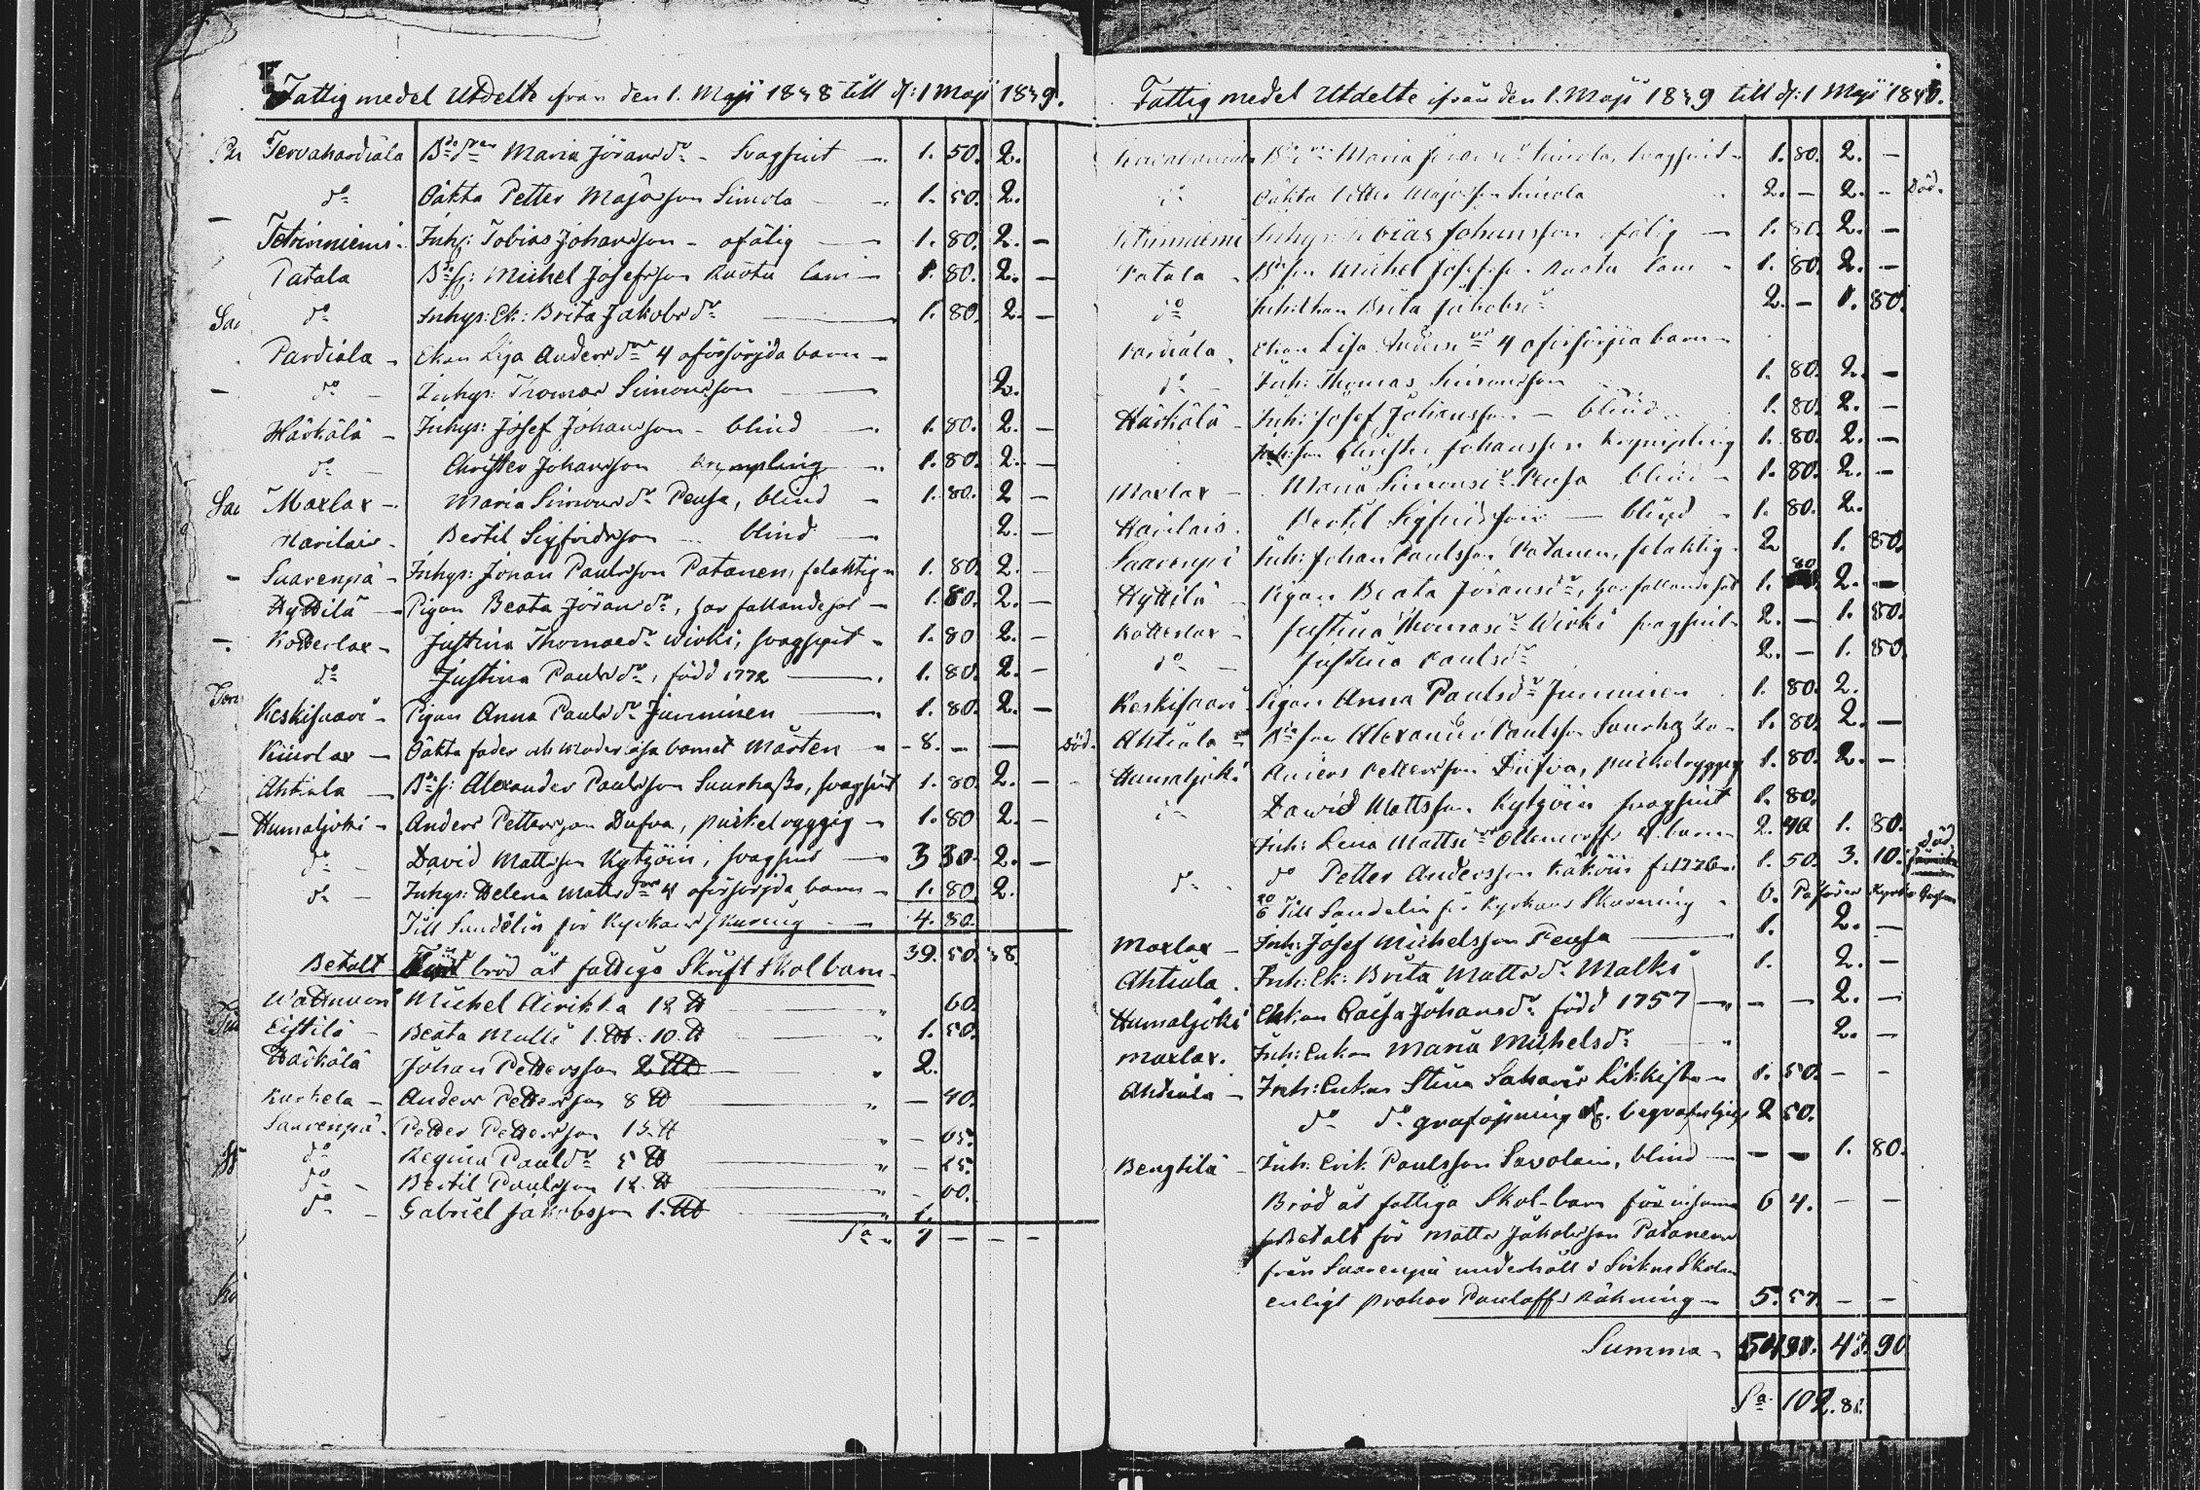 Fattig medel Utdelte ifrån den 1. Maji 1838 till d: 1 Maji 1839.
Tervahardiala Maria Jöransdr - Svagsint - 1. 50. 2.
do Oäkta Petter Majasson Simola 1. 50. 2.
Tetriniemi - Inhs: Tobias Johansson - ofälig 1. 80. 2. -
Patala Michel Josefsson Ruotu lam - 1. 80. 2. -
do Inhys: Ek: Brita Jakobsdr 1. 80. 2. -
Pardiala - Ekan Lisa Andersdr 4 oförsörjda barn -
do - Inhys: Thomas Simonsson 2.
Härkälä - Inhys: Josef Johansson - blind 1. 80. 2. -
do - Christer Johansson Krympling 1. 80. 2. -
Maxlax - Maria Simonsdr Peusa, blind - 1. 80. 2 -
Bertil Sigfridsson - blind 2. -
Saarenpä - Inhys: Johan Paulsson Patanen, felaktig 1. 80. 2. -
Hyttilä - Pigan Beata Jöransdr, har fallandesot - 1. 80. 2. -
Kotterlax - Justina Thomaedr Wirki, svagsint - 1. 80 2. -
do Justina Paulsdr, född 1772 1. 80. 2. -
Keskisaari - Pigan Anna Paulsdr Junninen 1. 80. 2. -
Oäkta fader och moderlösa barnet Mårten - 8. - - Död.
Ahtiala - Alexander Paulsson Suurhasko, svagsint 1. 80. 2. -
Humaljoki - Anders Pettersson Dufva, puckelryggig - 1. 80 2. -
do - David Mattsson Kytzöin, svagsint 3 30. 2. -
do - Inhys: Helena Mattsdr 4 oförsörjda barn - 1. 80 2.
Till Sundelin för Kyrkans skurning - 4. 80.
39. 50. 38.
Betalt bröd åt fattiga Skrift skolbarn
Michel Airikka 12 ℔ 60.
Eistilä - Beata Mulli 1. 10. ℔ 1. 50.
Härkälä Johan Pettersson 2 2.
Kurkela - Anders Pettersson 8 ℔ - 40.
Saarenpä - Petter Pettersson 13 ℔ - 65.
do Regina Paulsdr 5 ℔ - 25.
do - Bertil Paulsson 12 ℔ - 60.
do - Gabriel Jakobsson 1. 1.
Sa 7 - - -
Fattig medel Utdelte ifrån den 1. Maji 1839 till d: 1 Maji 1840.
Maria Simola, Svagsint 1. 80. 2. -
Oäkta Petter Majasson Simola 2. - 2. - Död.
Tobias Johansson ofälig - 1. 80. 2. -
Patala - Michel Josefsson Ruotu lam - 1. 80. 2. -
do Brita Jakobsdr 2. - 1. 80.
Pardiala - Ekan Lisa Andersdr 4 oförsörjda barn -
do - Inh: Thomas Simonsson 1. 80. 2. -
Härkälä - Inh: Josef Johansson - blind 1. 80. 2. -
Christer Johansson Krympling 1. 80. 2. -
Maxlax - Maria Simonsdr Peusa blind - 1. 80. 2. -
Bertil Sigfridsson - blind - 1. 80. 2.
Saarenpä Inh: Johan Paulsson Patanen, felaktig - 2 1. 80.
Hyttilä - Pigan Beata Jöransdr, har fallandesot 1. 80 2. -
Kotterlax - Justina Thomasdr Wirki svagsint 2. - 1. 80.
do - Justina Paulsdr 2. - 1. 80.
Keskisaari Pigan Anna Paulsdr Junninen 1. 80. 2.
Ahtiala Alexander Paulsson Suurhasko - 1. 80. 2. -
Humaljoki Anders Pettersson Dufva, puckelryggig 1. 80. 2. -
David Mattsson Kytzöin svagsint 1. 80.
Inh: Lena Mattsdr 4. barn - 2. 40 1. 80.
do - do Petter Andersson Käköin f: 1776 1. 50. 3. 10. Död
Till Sundelin för Kyrkans Skurning - 6.
Maxlax - Inh: Josef Michelsson Peusa 1. 2. -
Ahtiala - Inh: Ek: Brita Mattsdr Malki 1. 2. -
Humaljoki Enkan Caisa Johansdr född 1757 - - 2. -
Maxlax. Inh: Enkan Maria Michelsdr 2. -
Ahtiala - Inh: Enkan Stina likkista - 1. 50. - -
do do graföpning 2 50.
Bengtilä - Inh: Erik Paulsson Savolain, blind - - 1. 80.
Bröd åt fattiga Skol-barn 6 4. - -
Betalt för Matts Jakobsson Patanen
från Saarenpä underhåll
enligt Pauloffs Räkning - 5. 57. - -
Summa - 47. 90
Sa 102. 88.